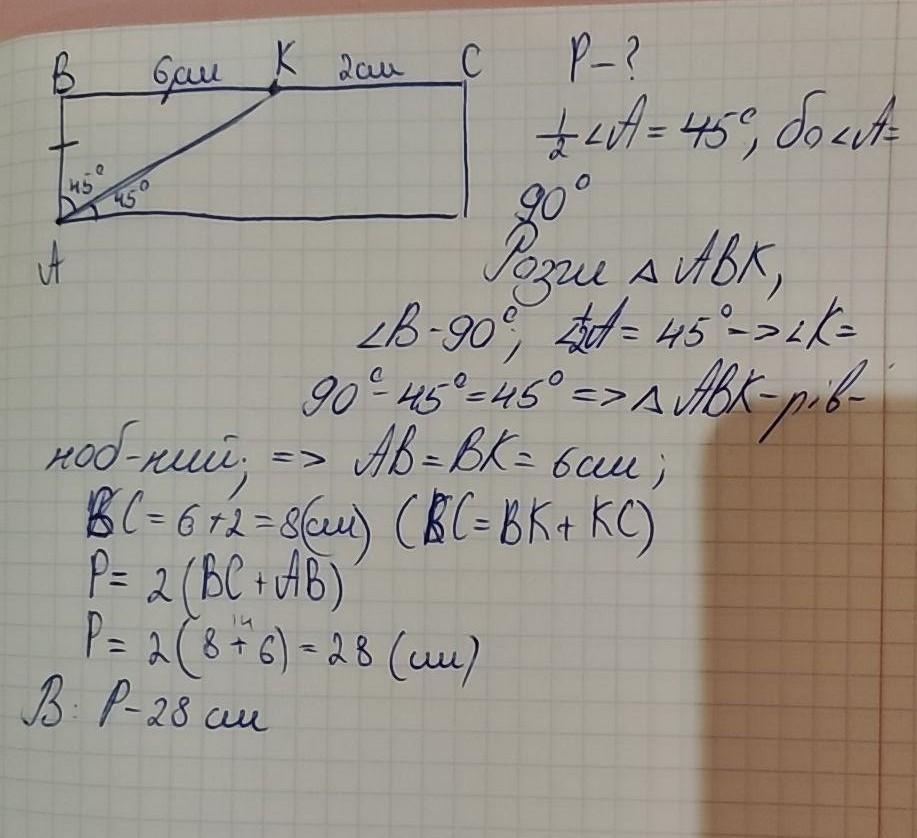 B 6см K 2см C
45°
45°
A
P-?
1/2 ∠A = 45°, бо ∠A=
90°
Розгл △ ABK,
∠B-90°; ∠1/2A = 45° -> ∠K=
90°-45°=45° => △ ABK-рів-
ноб-ний; => AB=BK= 6см;
BC=6+2=8(см) (BC=BK+KC)
P= 2(BC+AB)
14
P= 2(8+6)=28 (см)
В: P-28 см